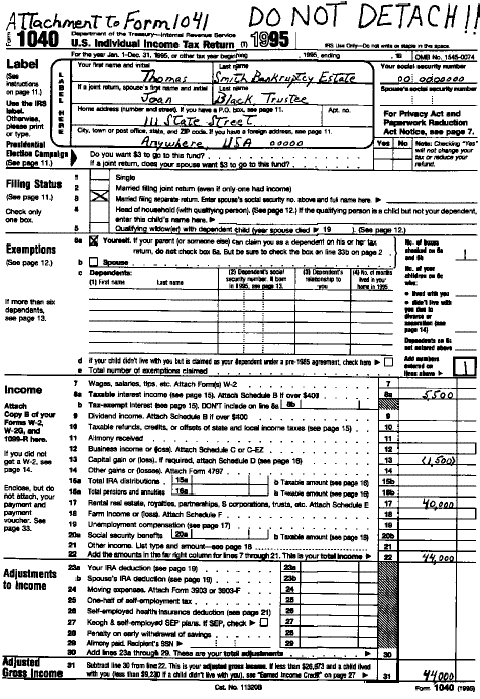 Attachment to Form 1041 DO NOT DETACH!!
Form 1040 Department of the Treasury—Internal Revenue Service
U.S. Individual Income Tax Return (T) 1995 IRS Use Only—Do not write or staple in this space.
For the year Jan. 1–Dec. 31, 1995, or other tax year beginning , 1995, ending , 19 OMB No. 1545-0074
Label
(See instructions on page 11.)
Use the IRS label. Otherwise, please print or type.
LABEL HERE
Your first name and initial Last name Your social security number
Thomas Smith Bankruptcy Estate 00 0000000
If a joint return, spouse's first name and initial Last name Spouse's social security number
Joan Black Trustee
Home address (number and street). If you have a P.O. box, see page 11. Apt. no.
111 State Street
City, town or post office, state, and ZIP code. If you have a foreign address, see page 11.
Anywhere, USA 00000
For Privacy Act and Paperwork Reduction Act Notice, see page 7.
Presidential Election Campaign (See page 11.)
Yes No Note: Checking "Yes" will not change your tax or reduce your refund.
Do you want $3 to go to this fund?
If a joint return, does your spouse want $3 to go to this fund?
Filing Status
(See page 11.)
Check only one box.
1 Single
2 Married filing joint return (even if only one had income)
3 Married filing separate return. Enter spouse's social security no. above and full name here.
4 Head of household (with qualifying person). (See page 12.) If the qualifying person is a child but not your dependent, enter this child's name here.
5 Qualifying widow(er) with dependent child (year spouse died 19 ). (See page 12.)
Exemptions
(See page 12.)
6a Yourself. If your parent (or someone else) can claim you as a dependent on his or her tax return, do not check box 6a. But be sure to check the box on line 33b on page 2
b Spouse
c Dependents:
(1) First name Last name
(2) Dependent's social security number. If born in 1995, see page 13.
(3) Dependent's relationship to you
(4) No. of months lived in your home in 1995
If more than six dependents, see page 13.
No. of boxes checked on 6a and 6b 1
No. of your children on 6c who:
• lived with you
• didn't live with you due to divorce or separation (see page 14)
Dependents on 6c not entered above
Add numbers entered on lines above 1
d If your child didn't live with you but is claimed as your dependent under a pre-1985 agreement, check here
e Total number of exemptions claimed
Income
Attach Copy B of your Forms W-2, W-2G, and 1099-R here.
If you did not get a W-2, see page 14.
Enclose, but do not attach, your payment and payment voucher. See page 33.
7 Wages, salaries, tips, etc. Attach Form(s) W-2 7
8a Taxable interest income (see page 15). Attach Schedule B if over $400 8a 5,500
b Tax-exempt interest (see page 15). DON'T include on line 8a 8b
9 Dividend income. Attach Schedule B if over $400 9
10 Taxable refunds, credits, or offsets of state and local income taxes (see page 15) 10
11 Alimony received 11
12 Business income or (loss). Attach Schedule C or C-EZ 12
13 Capital gain or (loss). If required, attach Schedule D (see page 16) 13 (1,500)
14 Other gains or (losses). Attach Form 4797 14
15a Total IRA distributions 15a b Taxable amount (see page 16) 15b
16a Total pensions and annuities 16a b Taxable amount (see page 16) 16b
17 Rental real estate, royalties, partnerships, S corporations, trusts, etc. Attach Schedule E 17 40,000
18 Farm income or (loss). Attach Schedule F 18
19 Unemployment compensation (see page 17) 19
20a Social security benefits 20a b Taxable amount (see page 18) 20b
21 Other income. List type and amount—see page 18 21
22 Add the amounts in the far right column for lines 7 through 21. This is your total income 22 44,000
Adjustments to Income
23a Your IRA deduction (see page 19) 23a
b Spouse's IRA deduction (see page 19) 23b
24 Moving expenses. Attach Form 3903 or 3903-F 24
25 One-half of self-employment tax 25
26 Self-employed health insurance deduction (see page 21) 26
27 Keogh & self-employed SEP plans. If SEP, check 27
28 Penalty on early withdrawal of savings 28
29 Alimony paid. Recipient's SSN 29
30 Add lines 23a through 29. These are your total adjustments 30
Adjusted Gross Income
31 Subtract line 30 from line 22. This is your adjusted gross income. If less than $26,673 and a child lived with you (less than $9,230 if a child didn't live with you), see "Earned Income Credit" on page 27 31 44,000
Cat. No. 11320B Form 1040 (1995)